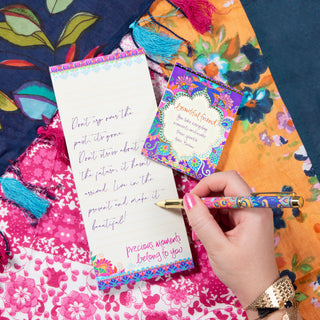 Don't cry over the
past, it's gone.
Don't stress about
the future, it hasn't
arrived. Live in the
present and make it
beautiful!
precious moments
belong to you!
beautiful friend
You take everyday
moments and make
them